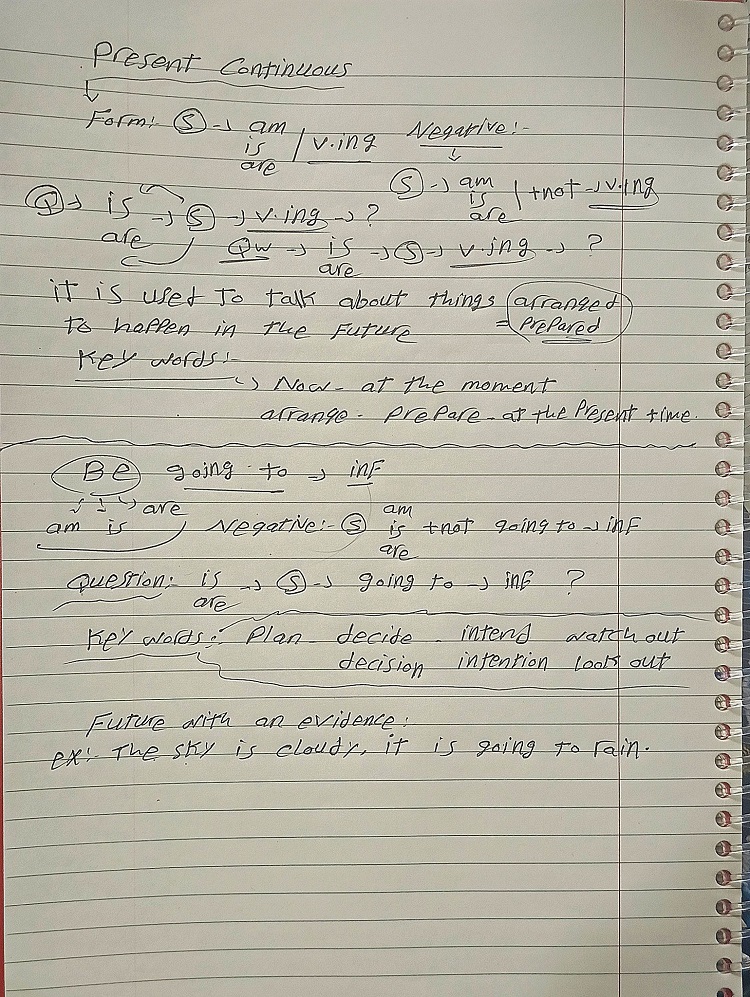 Present Continuous
Form: S → am / is / are / v.ing
Negative:-
S → am / is / are / +not → v.ing
Q → is / are → S → v.ing → ?
Qw → is / are → S → v.ing → ?
it is used to talk about things arranged
to happen in the Future = Prepared
Key words:-
Now - at the moment
arrange - prepare - at the Present time.
Be going to → inF
am is are
Negative:- S am / is / are +not going to → inF
Question: is / are → S → going to → inF ?
Key words: Plan - decide - intend watch out
decision intention look out
Future with an evidence:
ex:- The sky is cloudy, it is going to rain.